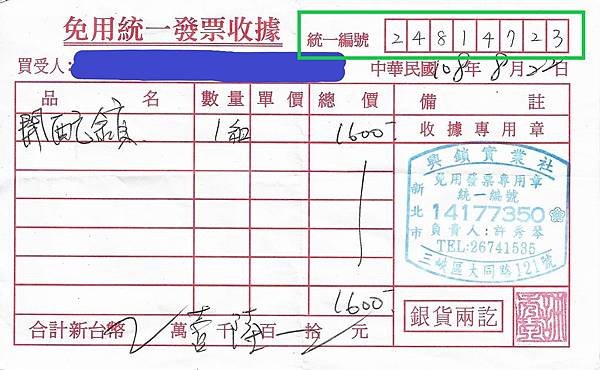 免用統一發票收據
統一編號 24814723
買受人：
中華民國108年8月22日
品名 數量 單價 總價 備註
開配鎖 1組 1600 收據專用章
興鎖實業社
免用發票專用章
統一編號
新北市 14177350
負責人：許秀琴
TEL:26741535
三峽區大同路121號
1600
合計新台幣 萬壹千陸百 拾 元
銀貨兩訖